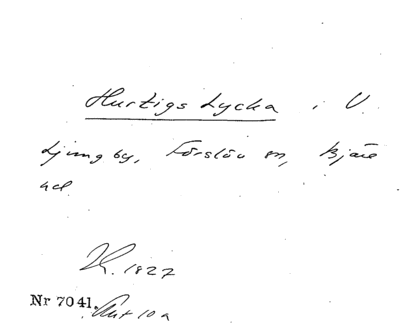 Hurtigs Lycka i V.
Ljungby, Förslöv sn, Bjäre
hd
1827
Nr 7041.
Akt 10a